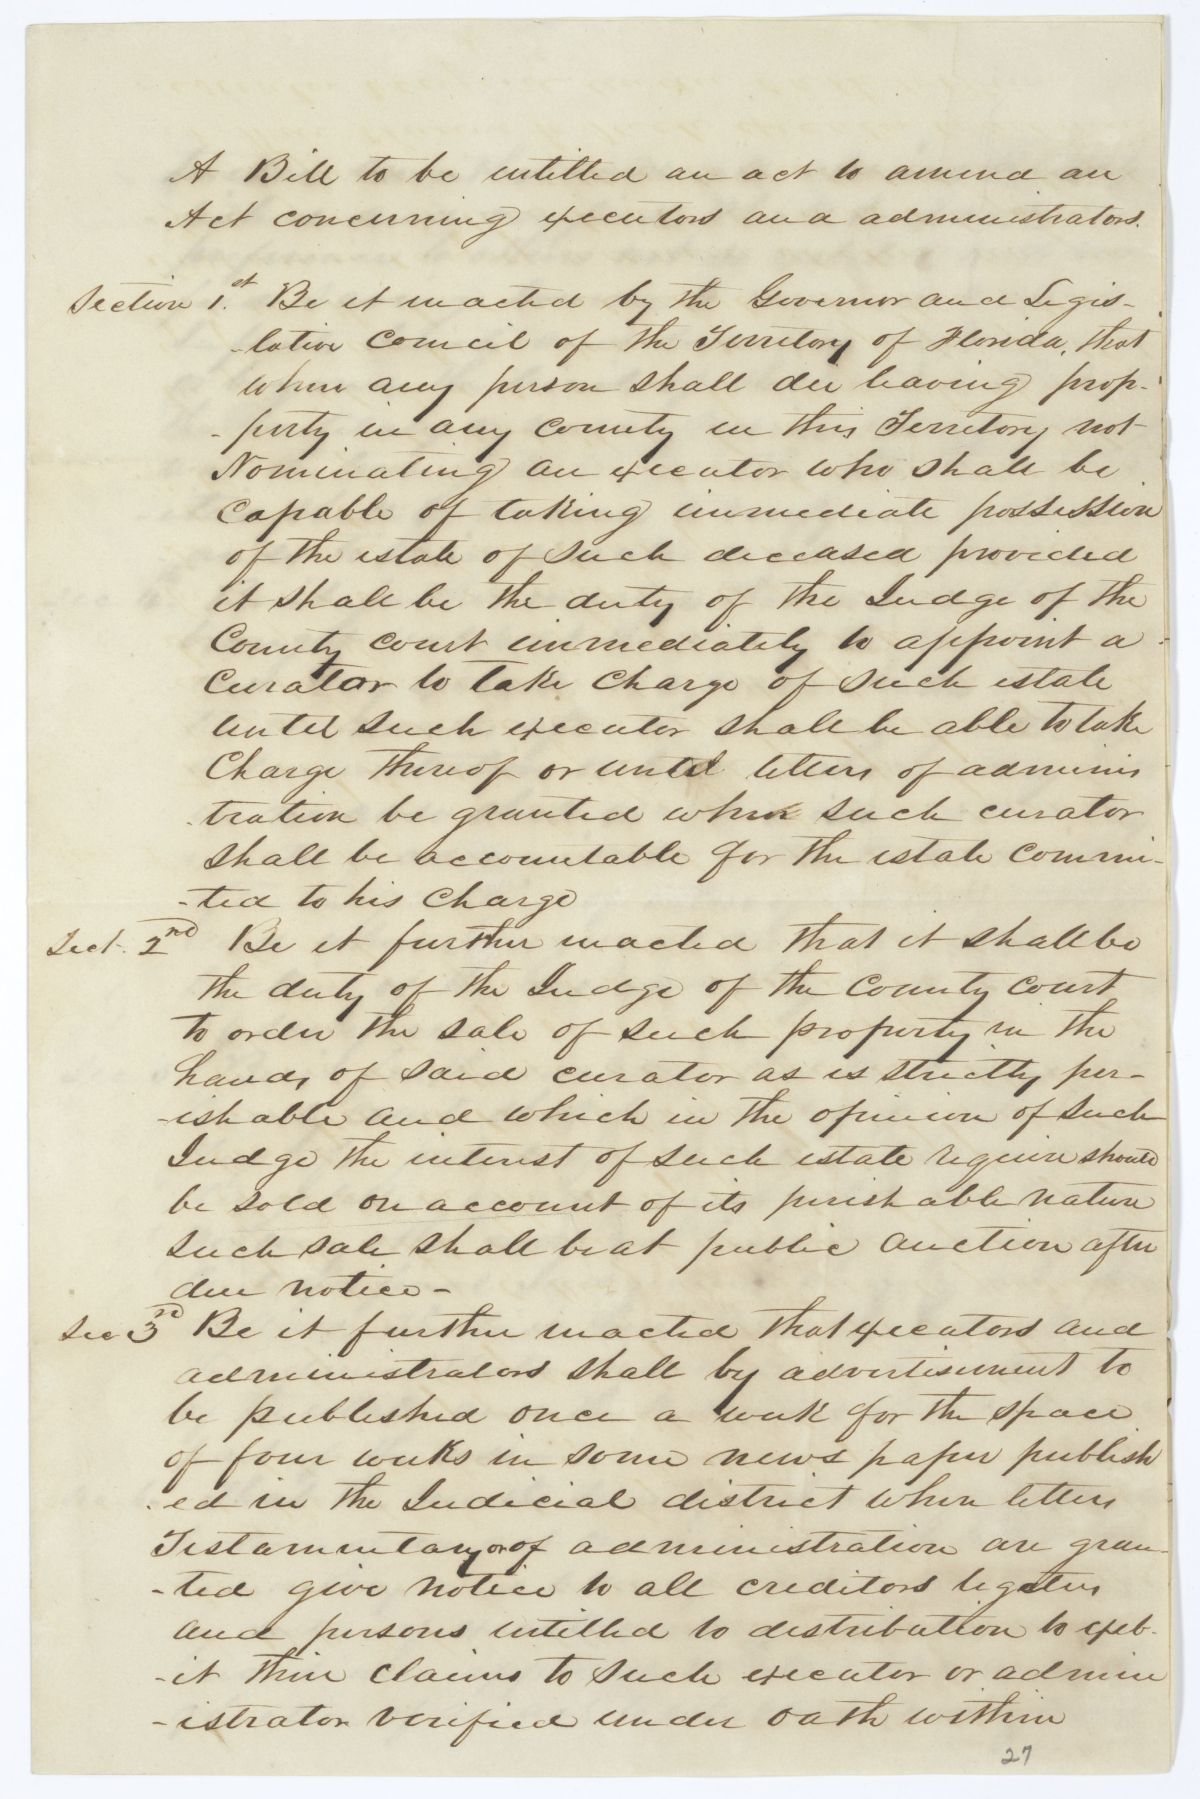 A Bill to be intitled an act to amend an
Act concerning executors and administrators.
Section 1.st Be it enacted by the Governor and Legis-
-lative Council of the Territory of Florida, that
when any person shall die leaving prop-
-perty in any County in this Territory not
Nominating an executor who shall be
Capable of taking immediate possession
of the estate of such deceased provided
it shall be the duty of the Judge of the
County court immediately to appoint a
Curator to take Charge of such estate
until such executor shall be able to take
Charge thereof or until letters of adminis
-tration be granted when such curator
shall be accountable for the estate commi-
-ted to his Charge
Sect. 2nd Be it further enacted that it shall be
the duty of the Judge of the County Court
to order the sale of such property in the
hands of said curator as is strictly per-
-ishable and which in the opinion of such
Judge the interest of such estate require should
be sold on account of its perishable nature
such sale shall be at public auction after
due notice-
Sec 3rd Be it further enacted that executors and
administrators shall by advertisement to
be published once a week for the space
of four weeks in some news paper publish
-ed in the Judicial district when letters
Testamentary or of administration are gran-
-ted give notice to all creditors legatees
and persons intitled to distribution to exib-
-it their claims to such executor or admin
-istrator verified under oath within
27